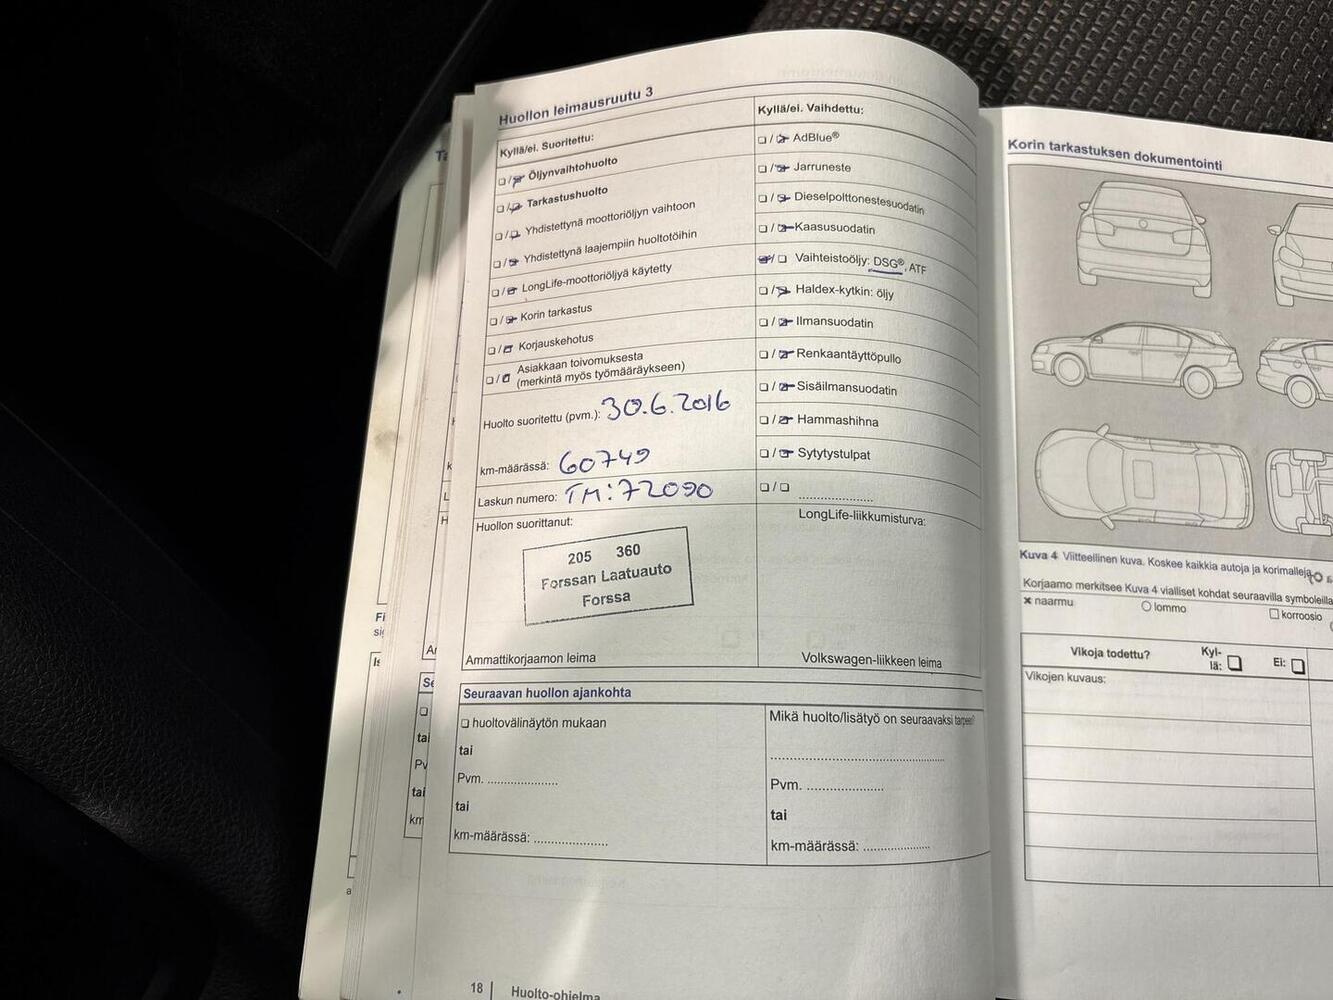 Huollon leimausruutu 3
Kyllä/ei. Suoritettu:
Öljynvaihtohuolto
Tarkastushuolto
Yhdistettynä moottoriöljyn vaihtoon
Yhdistettynä laajempiin huoltotöihin
LongLife-moottoriöljyä käytetty
Korin tarkastus
Korjauskehotus
Asiakkaan toivomuksesta
(merkintä myös työmääräykseen)
Huolto suoritettu (pvm.): 30.6.2016
km-määrässä: 60749
Laskun numero: TM:72090
Huollon suorittanut:
205 360
Forssan Laatuauto
Forssa
Ammattikorjaamon leima
Kyllä/ei. Vaihdettu:
AdBlue®
Jarruneste
Dieselpolttonestesuodatin
Kaasusuodatin
Vaihteistoöljy: DSG®, ATF
Haldex-kytkin: öljy
Ilmansuodatin
Renkaantäyttöpullo
Sisäilmansuodatin
Hammashihna
Sytytystulpat
LongLife-liikkumisturva:
Volkswagen-liikkeen leima
Seuraavan huollon ajankohta
huoltovälinäytön mukaan
tai
Pvm. ....................
tai
km-määrässä: ....................
Mikä huolto/lisätyö on seuraavaksi tarpeen?
Pvm. ....................
tai
km-määrässä: ....................
18 | Huolto-ohjelma
Korin tarkastuksen dokumentointi
Kuva 4 Viitteellinen kuva. Koskee kaikkia autoja ja korimalleja
Korjaamo merkitsee Kuva 4 vialliset kohdat seuraavilla symboleilla
naarmu
lommo
korroosio
Vikoja todettu?
Kyl-
lä:
Ei:
Vikojen kuvaus: